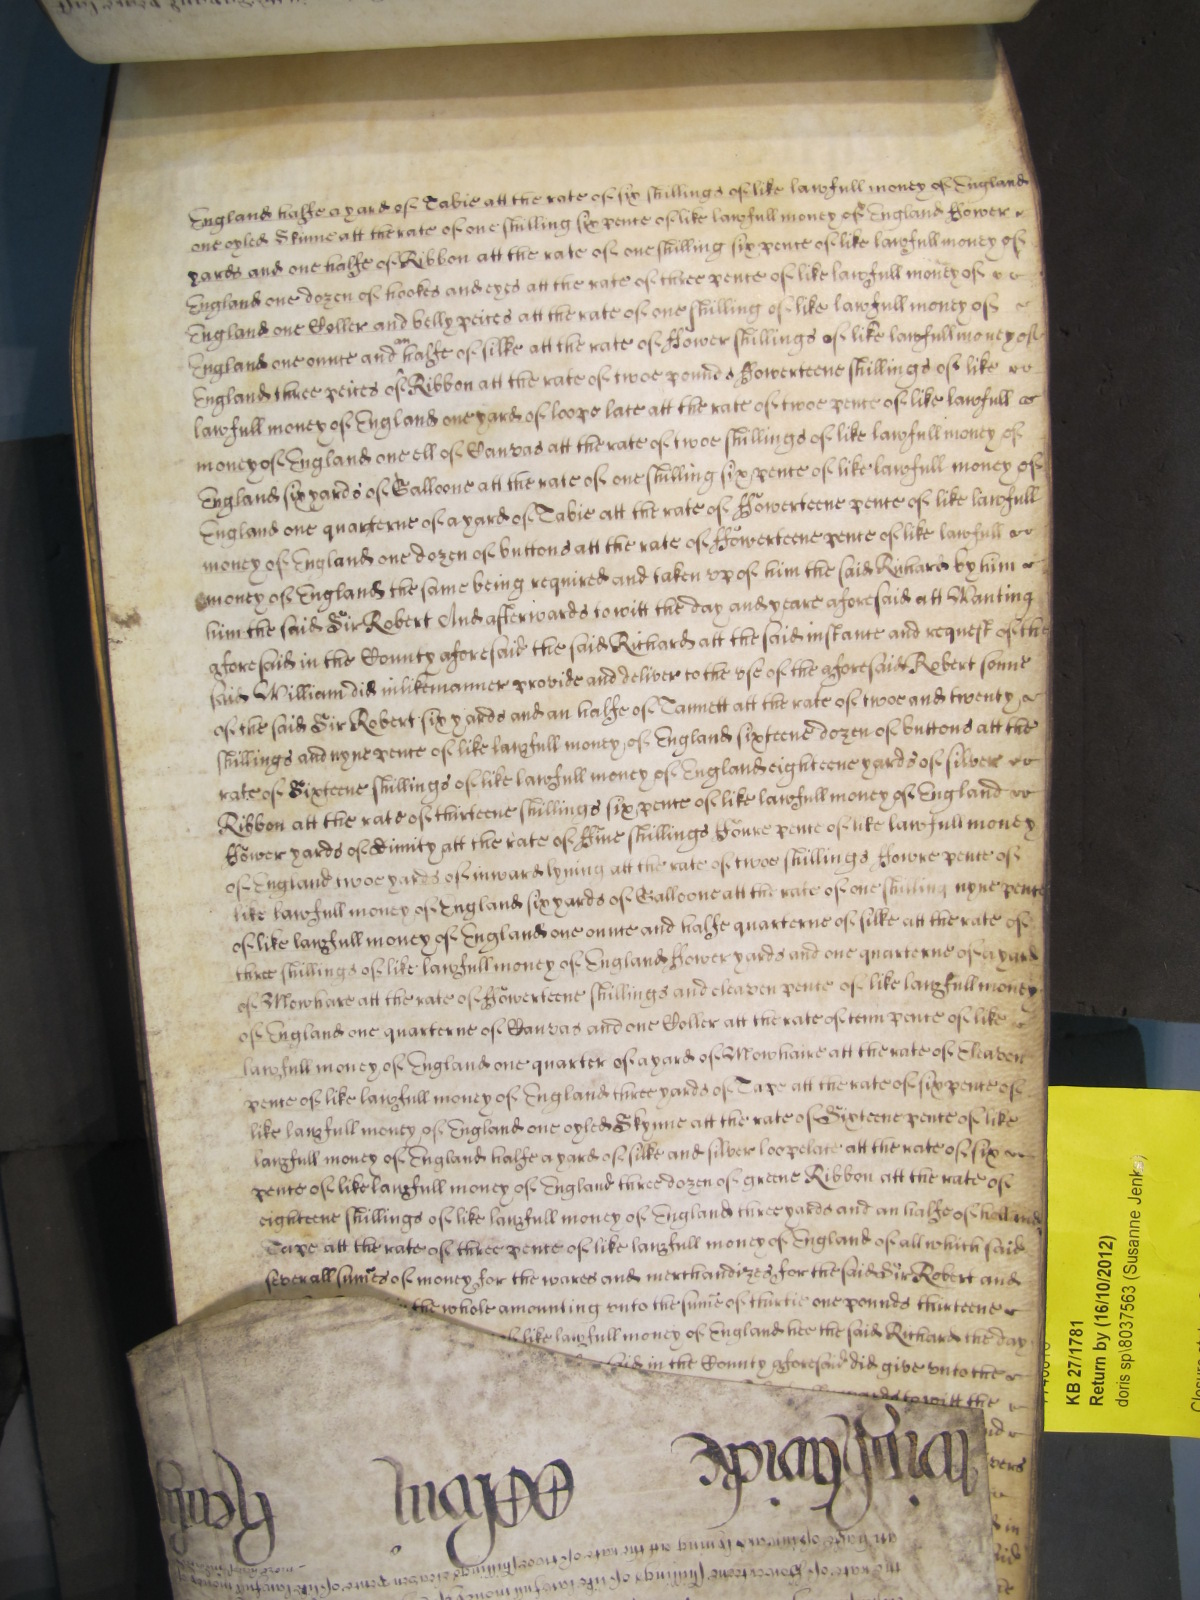 England halfe a yard of Tabie att the rate of six shillings of like lawfull money of England
one oyled Skinne att the rate of one shilling six pence of like lawfull money of England ffower
yards and one halfe of Ribbon att the rate of one shilling six pence of like lawfull money of
England one dozen of hookes and eyes att the rate of three pence of like lawfull money of
England one Coller and belly peices att the rate of one shilling of like lawfull money of
England one ounce and an halfe of silke att the rate of ffower shillings of like lawfull money of
England three peices of Ribbon att the rate of twoe pounds ffowerteene shillings of like
lawfull money of England one yard of loope lace att the rate of twoe pence of like lawfull
money of England one ell of Canvas att the rate of twoe shillings of like lawfull money of
England six yards of Galloone att the rate of one shilling six pence of like lawfull money of
England one quarterne of a yard of Tabie att the rate of ffowerteene pence of like lawfull
money of England one dozen of buttons att the rate of ffowerteene pence of like lawfull
money of England the same being required and taken vp of him the said Richard by him
him the said Sir Robert And afterwards to witt the day and yeare aforesaid att Wanting
aforesaid in the County aforesaid the said Richard att the said instance and request of the
said William did in like manner provide and deliver to the vse of the aforesaid Robert sonne
of the said Sir Robert six yards and an halfe of Tannett att the rate of twoe and twenty
shillings and nyne pence of like lawfull money of England sixteene dozen of buttons att the
rate of Sixteene shillings of like lawfull money of England eighteene yards of silver
Ribbon att the rate of thirteene shillings six pence of like lawfull money of England
ffower yards of dimity att the rate of ffive shillings ffoure pence of like lawfull money
of England twoe yards of inward lyning att the rate of twoe shillings ffowre pence of
like lawfull money of England six yards of Galloone att the rate of one shilling nyne pence
of like lawfull money of England one ounce and halfe quarterne of silke att the rate of
three shillings of like lawfull money of England ffower yards and one quarterne of a yard
of Mowhare att the rate of ffowerteene shillings and eleaven pence of like lawfull money
of England one quarterne of Canvas and one Coller att the rate of tenn pence of like
lawfull money of England one quarter of a yard of Mowhaire att the rate of Eleaven
pence of like lawfull money of England three yards of Tape att the rate of six pence of
like lawfull money of England one oyled Skynne att the rate of Sixteene pence of like
lawfull money of England halfe a yard of silke and silver loopelace att the rate of six
pence of like lawfull money of England three dozen of greene Ribbon att the rate of
eighteene shillings of like lawfull money of England three yards and an halfe of holland
Tape att the rate of three pence of like lawfull money of England of all which said
severall sumes of money for the wares and merchandizes for the said Sir Robert and
the whole amounting vnto the sume of thirtie one pounds thirteene
of like lawfull money of England hee the said Richard the day
said in the County aforesaid did give vnto the
to witt the
KB 27/1781
Return by (16/10/2012)
doris sp\8037563 (Susanne Jenk